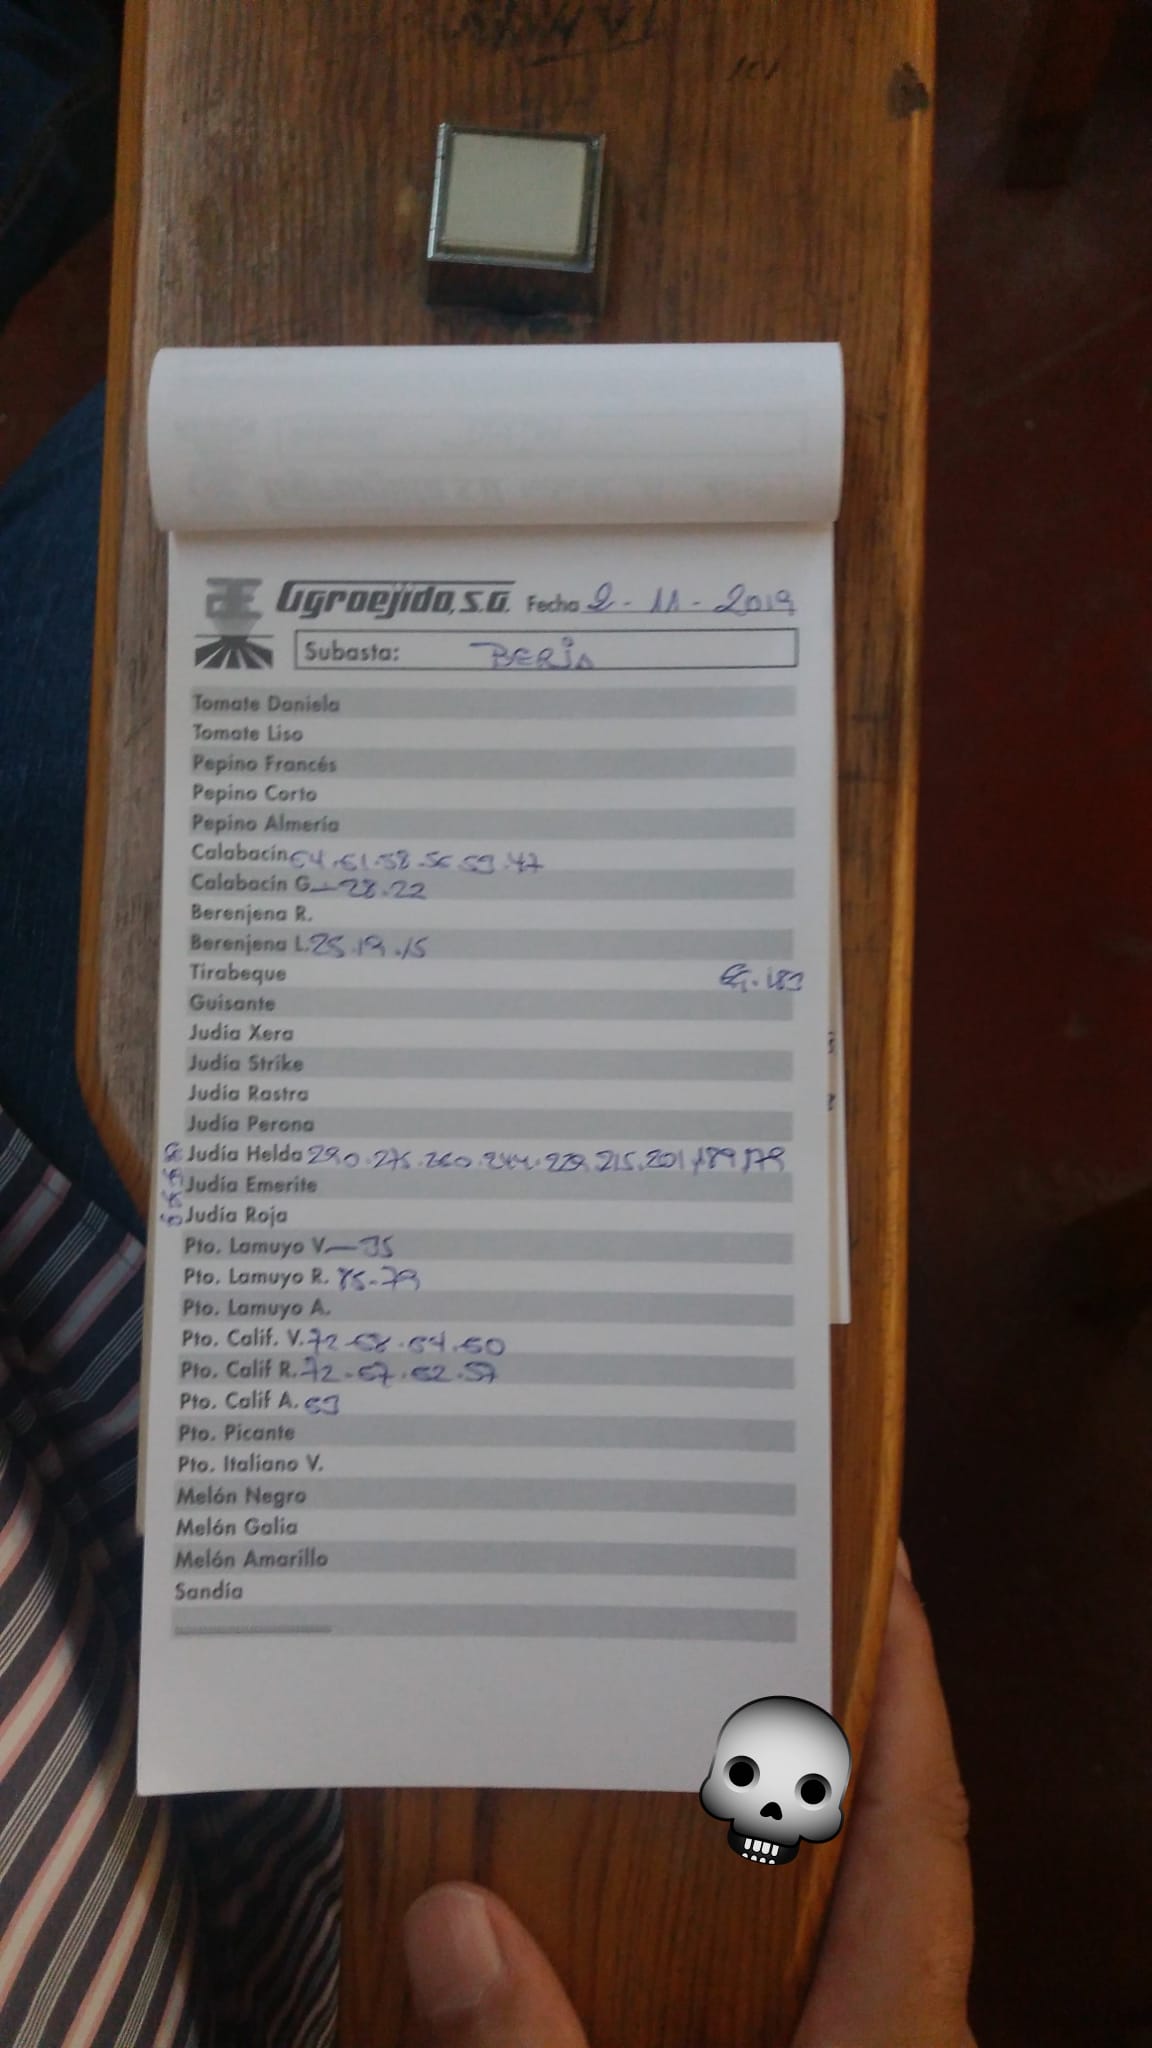 Agroejido, S.A. Fecha 2-11-2019
Subasta: BERJA
Tomate Daniela
Tomate Liso
Pepino Francés
Pepino Corto
Pepino Almería
Calabacín 64.61.58.56.53.47
Calabacín G.—28.22
Berenjena R.
Berenjena L. 25.19.15
Tirabeque
Guisante
Judía Xera
Judía Strike
Judía Rastra
Judía Perona
Judía Helda 290.275.260.244.229.215.201.189.179
Judía Emerite
Judía Roja
Pto. Lamuyo V.—95
Pto. Lamuyo R. 85-79
Pto. Lamuyo A.
Pto. Calif. V. 72-68.64.60
Pto. Calif R. 72-67.62.57
Pto. Calif A. 69
Pto. Picante
Pto. Italiano V.
Melón Negro
Melón Galia
Melón Amarillo
Sandía